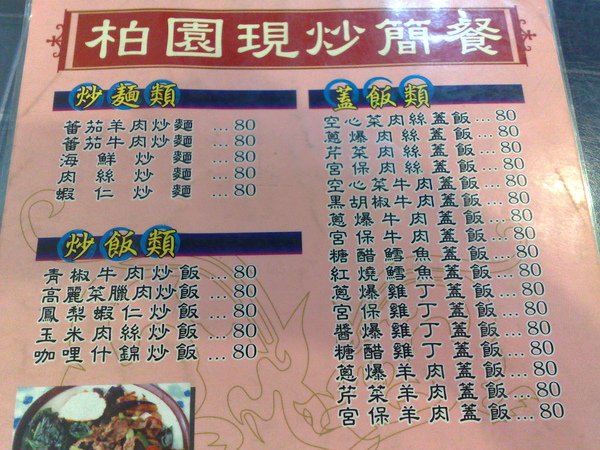 柏園現炒簡餐
炒麵類
蕃茄羊肉炒麵 ...80
蕃茄牛肉炒麵 ...80
海鮮炒麵 ...80
肉絲炒麵 ...80
蝦仁炒麵 ...80
炒飯類
青椒牛肉炒飯 ...80
高麗菜臘肉炒飯 ...80
鳳梨蝦仁炒飯 ...80
玉米肉絲炒飯 ...80
咖哩什錦炒飯 ...80
蓋飯類
空心菜肉絲蓋飯 ...80
蔥爆肉絲蓋飯 ...80
芹菜肉絲蓋飯 ...80
宮保肉絲蓋飯 ...80
空心菜牛肉蓋飯 ...80
黑胡椒牛肉蓋飯 ...80
蔥爆牛肉蓋飯 ...80
宮保牛肉蓋飯 ...80
糖醋鱈魚蓋飯 ...80
紅燒鱈魚蓋飯 ...80
蔥爆雞丁蓋飯 ...80
宮保雞丁蓋飯 ...80
醬爆雞丁蓋飯 ...80
糖醋雞丁蓋飯 ...80
蔥爆羊肉蓋飯 ...80
芹菜羊肉蓋飯 ...80
宮保羊肉蓋飯 ...80